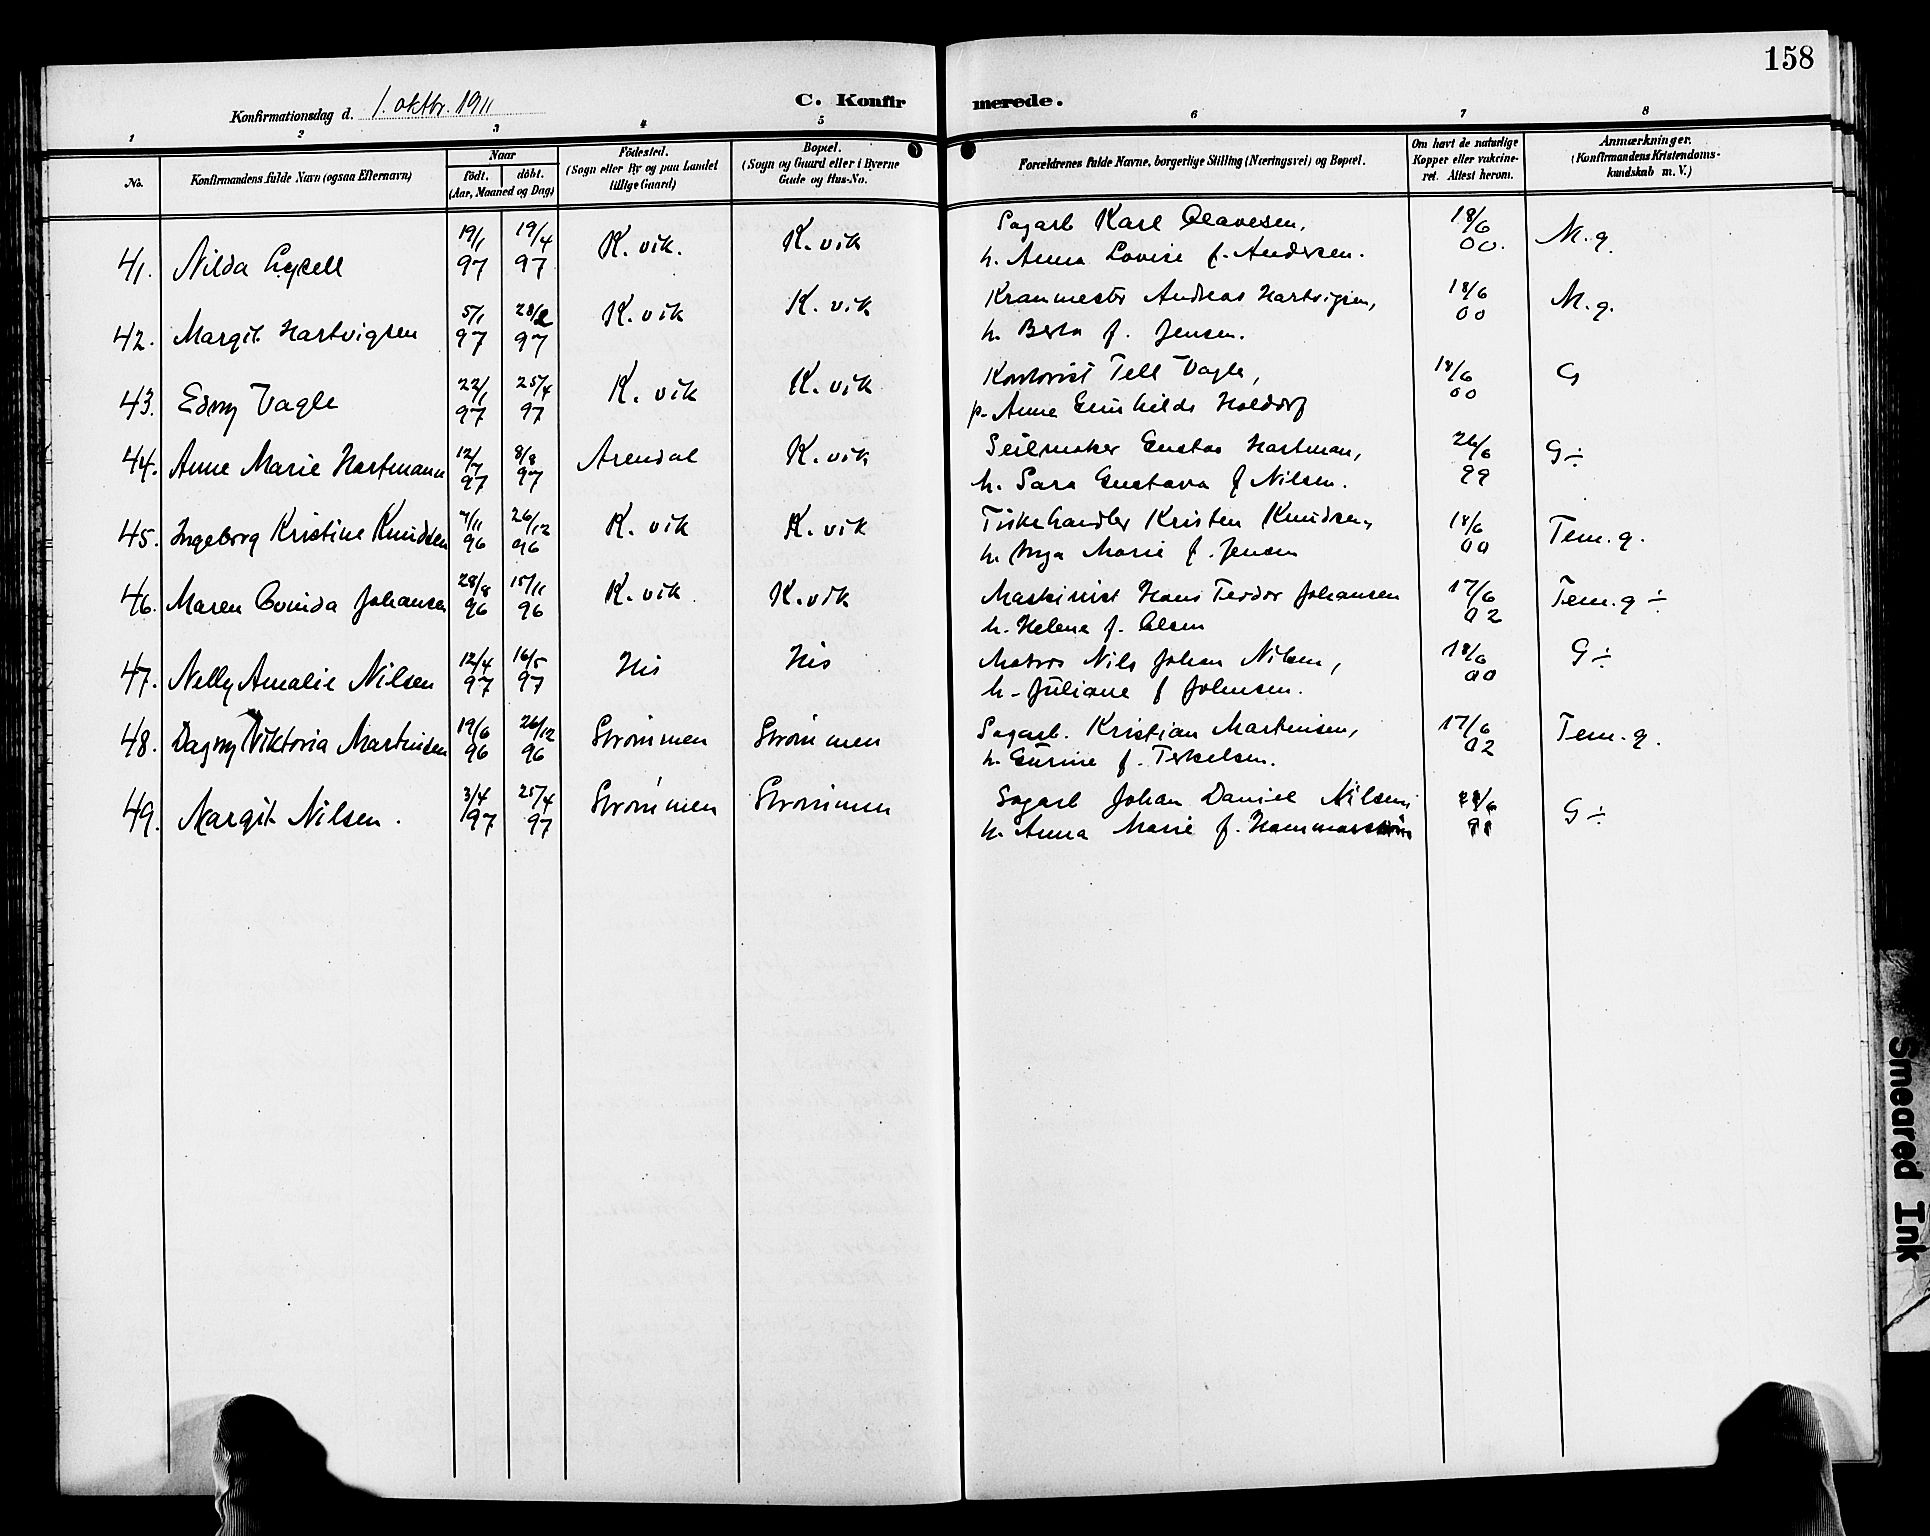 158
Konfirmationsdag d. 1. oktbr. 1911
C. Konfirmerede.
1 2 3 4 5 6 7 8
No.
Konfirmandens fulde Navn (ogsaa Efternavn)
Naar
født. døbt.
(Aar, Maaned og Dag)
Fødested.
(Sogn eller By og paa Landet
tillige Gaard)
Bopæl.
(Sogn og Gaard eller i Byerne
Gade og Hus-No.
Forældrenes fulde Navne, borgerlige Stilling (Næringsvei) og Bopæl.
Om havt de naturlige
Kopper eller vakcine-
ret. Attest herom.
Anmærkninger.
(Konfirmandens Kristendoms-
kundskab m. V.)
41. Nilda 19/1 97 19/4 97 K. vik. K. vik Sagarb Karl Olavesen, 18/6 00. M. g.
h. Anna Lovise f. Andersen.
42. Margit Hartvigsen 5/1 97 28/2 97 K. vik K. vik Kranmester Andreas Hartvigsen, 18/6 00 M. g.
h. Berta f. Jensen.
43. Edny Vagle 22/1 97 25/4 97 K. vik K. vik Tell Vagle, 18/6 00 G
p. Anne Holdorf
44. Anne Marie Hartmann 12/7 97 8/8 97 Arendal K. vik Seilmaker Gustav Hartman, 26/6 99 G ÷
h. Sara Gustava f Nilsen.
45. Ingeborg Kristine Knudsen 7/11 96 26/12 96 K. vik K. vik Fiskehandler Kristen Knudsen, 18/6 00 Tem. g.
h. Inga Marie f. Jensen
46. Maren Johansen 28/8 96 15/11 96 K. vik K. vik Maskinist Hans Teodor Johansen 17/6 02 Tem. g ÷
h. Helene f. Olsen
47. Nelly Amalie Nilsen 12/4 97 16/5 97 His His Matros Nils Johan Nilsen, 18/6 00 G ÷
h. Juliane f Johnsen.
48. Dagny Viktoria Martinsen 19/6 96 26/12 96 Strømmen Strømmen Sagarb. Kristian Martinsen, 17/6 02 Tem. g.
h. Gurine f. Terkelsen.
49. Margit Nilsen. 3/4 97 25/4 97 Strømmen Strømmen Sagarb Johan Daniel Nilsen, G ÷
h. Anna Marie f. Hammarstrøm
Smeared Ink